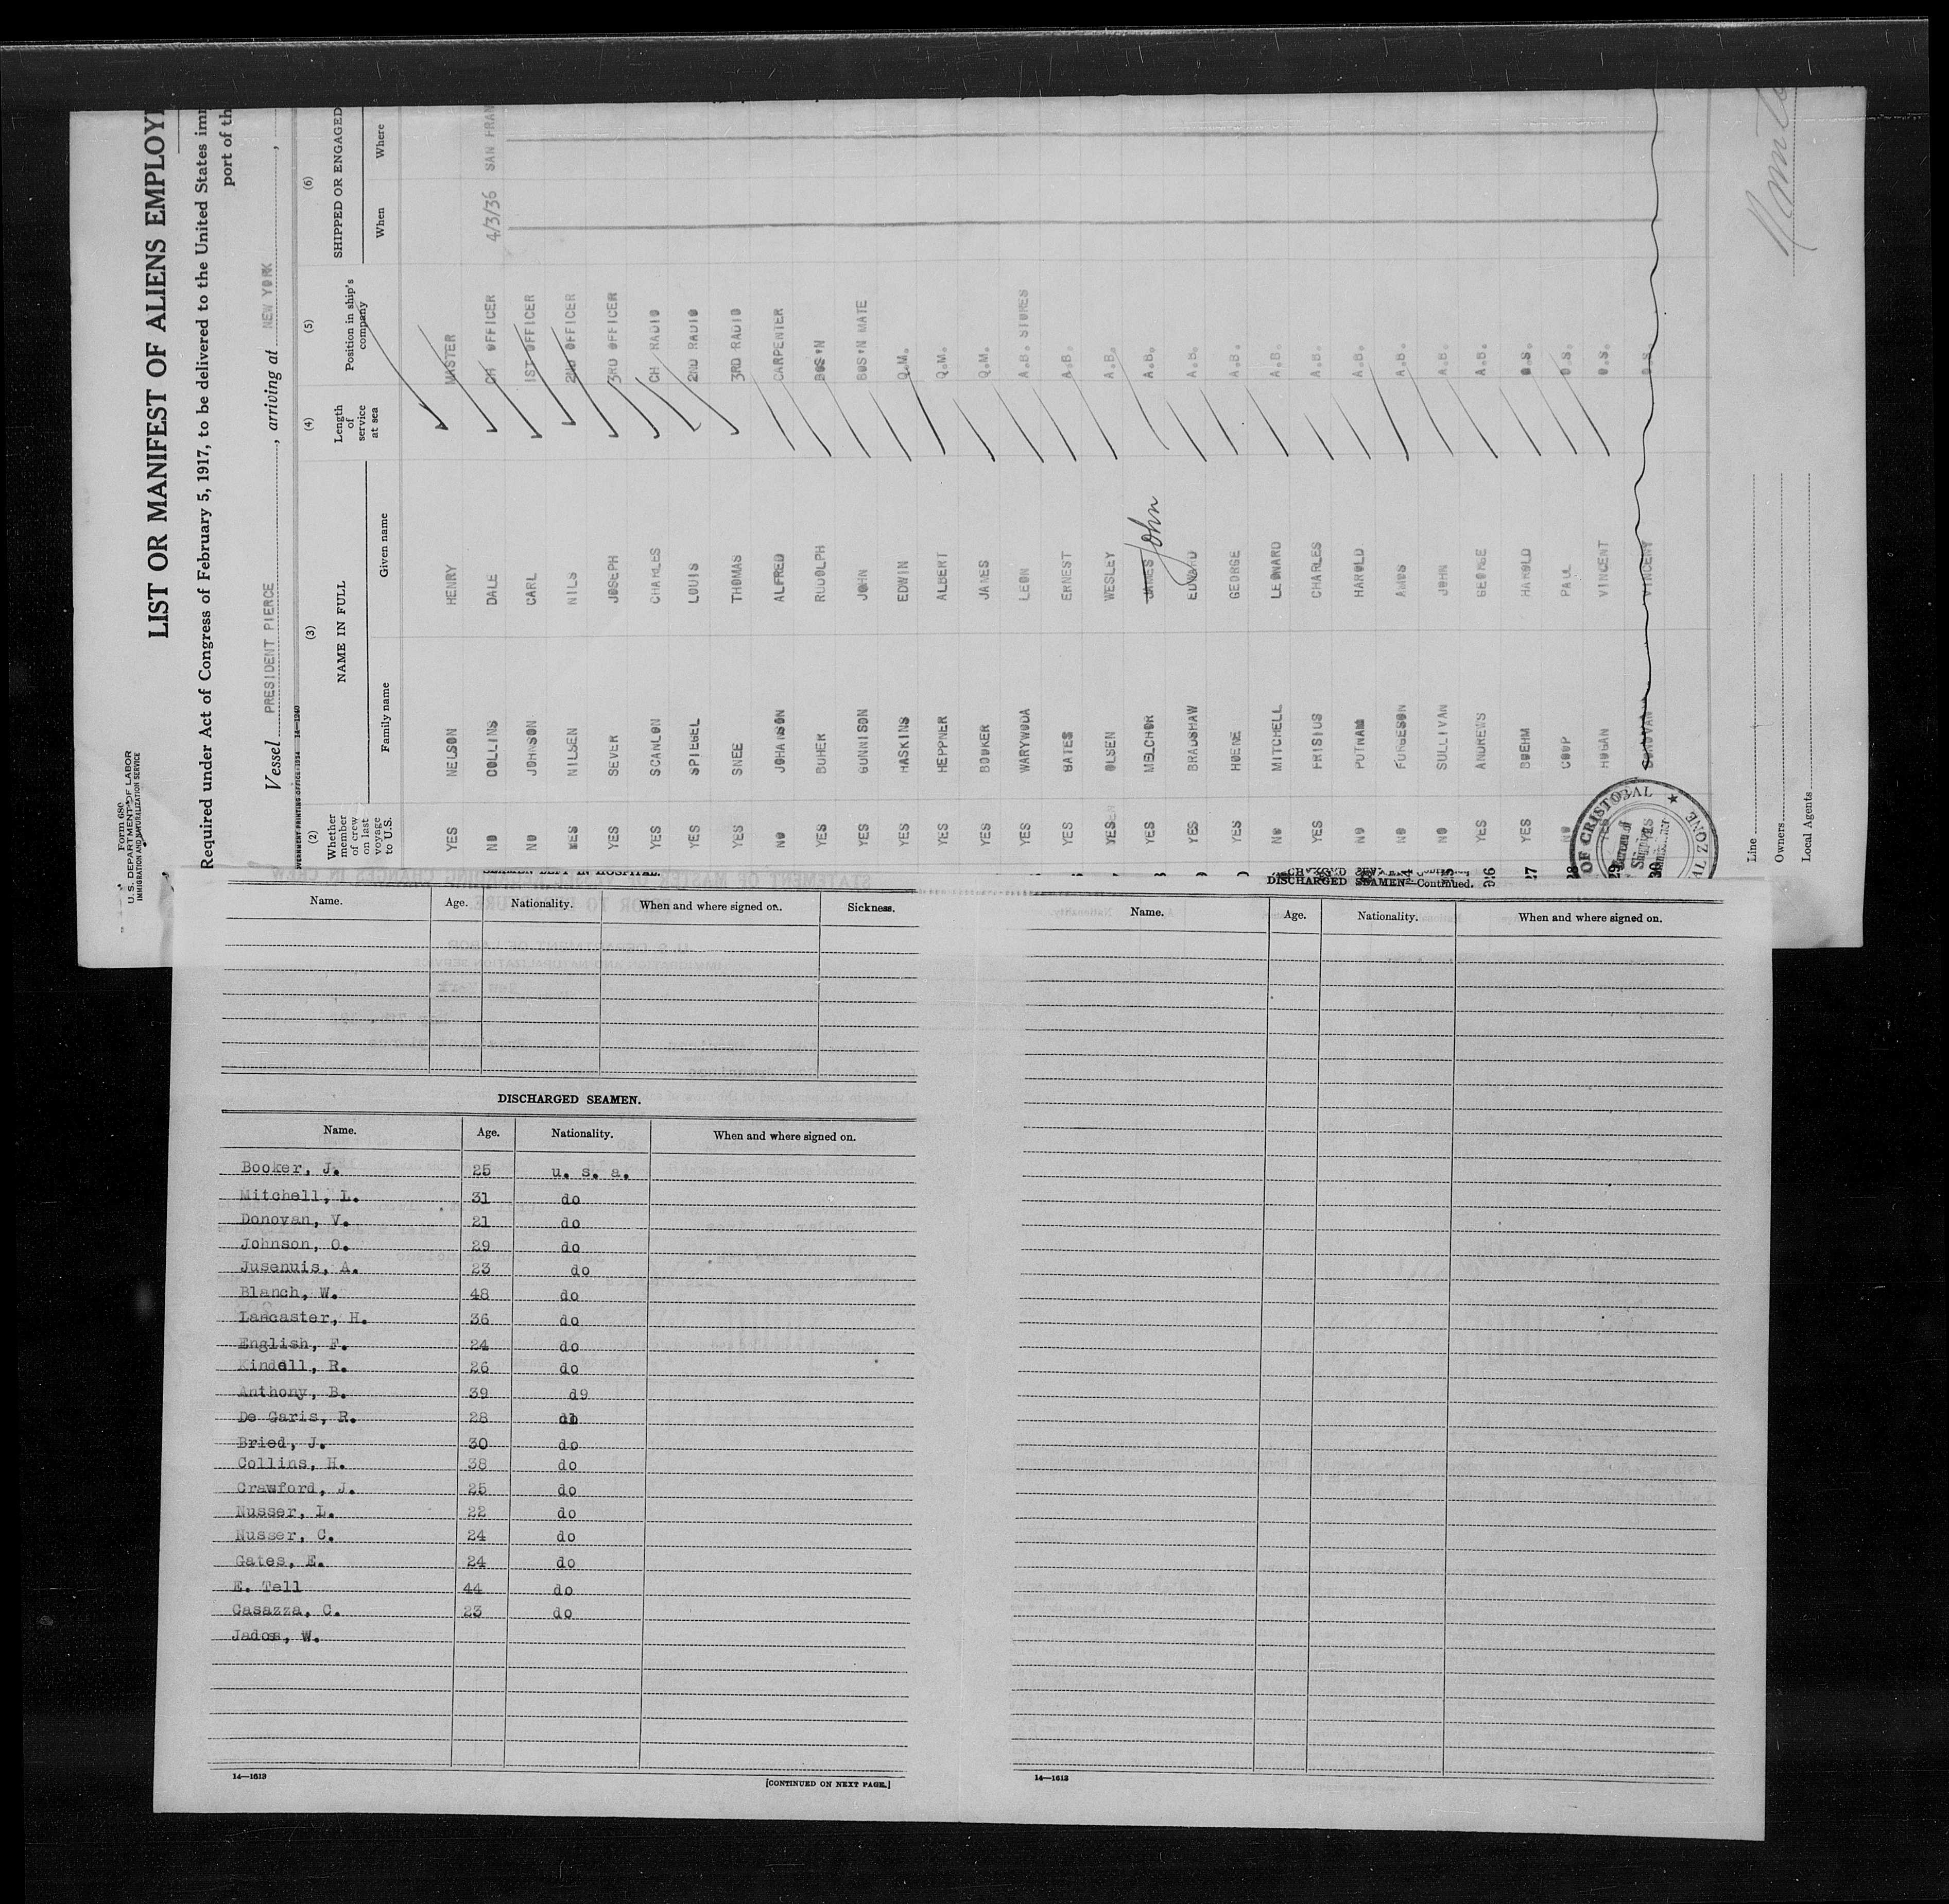 Form 680
U. S. DEPARTMENT OF LABOR
IMMIGRATION AND NATURALIZATION SERVICE
LIST OR MANIFEST OF ALIENS EMPLOY
Required under Act of Congress of February 5, 1917, to be delivered to the United States
port of th
Vessel PRESIDENT PIERCE, arriving at NEW YORK,
14—1240
(2) (3) (4) (5) (6)
Whether member of crew on last voyage to U.S. NAME IN FULL Length of service at sea Position in ship's company SHIPPED OR ENGAGED
Family name Given name When Where
YES NELSON HENRY MASTER
NO COLLINS DALE CH OFFICER 4/3/36 SAN FRAN
NO JOHNSON CARL 1ST OFFICER
YES NILSEN NILS 2ND OFFICER
YES SEVER JOSEPH 3RD OFFICER
YES SCANLON CHARLES CH RADIO
YES SPIEGEL LOUIS 2ND RADIO
YES SNEE THOMAS 3RD RADIO
NO JOHANSON ALFRED CARPENTER
YES BUHER RUDOLPH BOS'N
YES GUNNISON JOHN BOS'N MATE
YES HASKINS EDWIN Q.M.
YES HEPPNER ALBERT Q.M.
YES BOOKER JAMES Q.M.
YES WARYWODA LEON A.B. STORES
YES GATES ERNEST A.B.
YES OLSEN WESLEY A.B.
YES MELCHOR JAMES John A.B.
YES BRADSHAW EDWARD A.B.
YES HOENE GEORGE A.B.
NO MITCHELL LEONARD A.B.
YES FRISIUS CHARLES A.B.
NO PUTNAM HAROLD A.B.
NO FURGESON AMOS A.B.
NO SULLIVAN JOHN A.B.
YES ANDREWS GEORGE A.B.
YES BOEHM HAROLD O.S.
NO COUP PAUL O.S.
YES HOGAN VINCENT O.S.
DONOVAN VINCENT O.S.
OF CRISTOBAL
Bureau of
Shipping
29
30
Line
Owners
Local Agents
SEAMEN LEFT IN HOSPITAL.
Name. Age. Nationality. When and where signed on. Sickness.
DISCHARGED SEAMEN.
Name. Age. Nationality. When and where signed on.
Booker, J. 25 u. s. a.
Mitchell, L. 31 do
Donovan, V. 21 do
Johnson, O. 29 do
Jusenuis, A. 23 do
Blanch, W. 48 do
Lancaster, H. 36 do
English, F. 24 do
Kindell, R. 26 do
Anthony, B. 39 d9
De Garis, R. 28 do
Bried, J. 30 do
Collins, H. 38 do
Crawford, J. 25 do
Nusser, L. 22 do
Nusser, C. 24 do
Gates, E. 24 do
E. Tell 44 do
Casazza, C. 23 do
Jados, W.
14—1613
[CONTINUED ON NEXT PAGE.]
DISCHARGED SEAMEN—Continued.
Name. Age. Nationality. When and where signed on.
14—1613